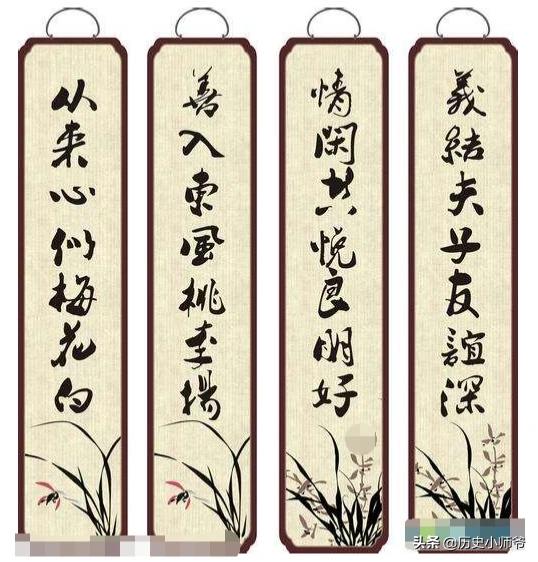 从来心似梅花白
善入東風桃李揚
情閑共悅良朋好
義結夫子友誼深
头条 @历史小师爷